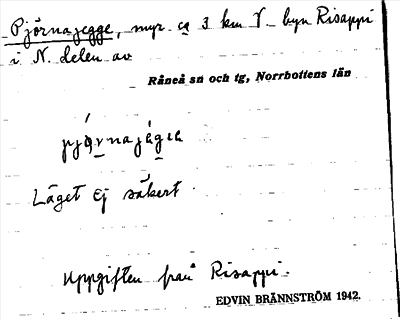 Pjörnajegge, myr. ca 3 km V. byn Risappi
i N. delen av
Råneå sn och tg, Norrbottens län
Läget ej säkert
Uppgiften från Risappi.
EDVIN BRÄNNSTRÖM 1942.